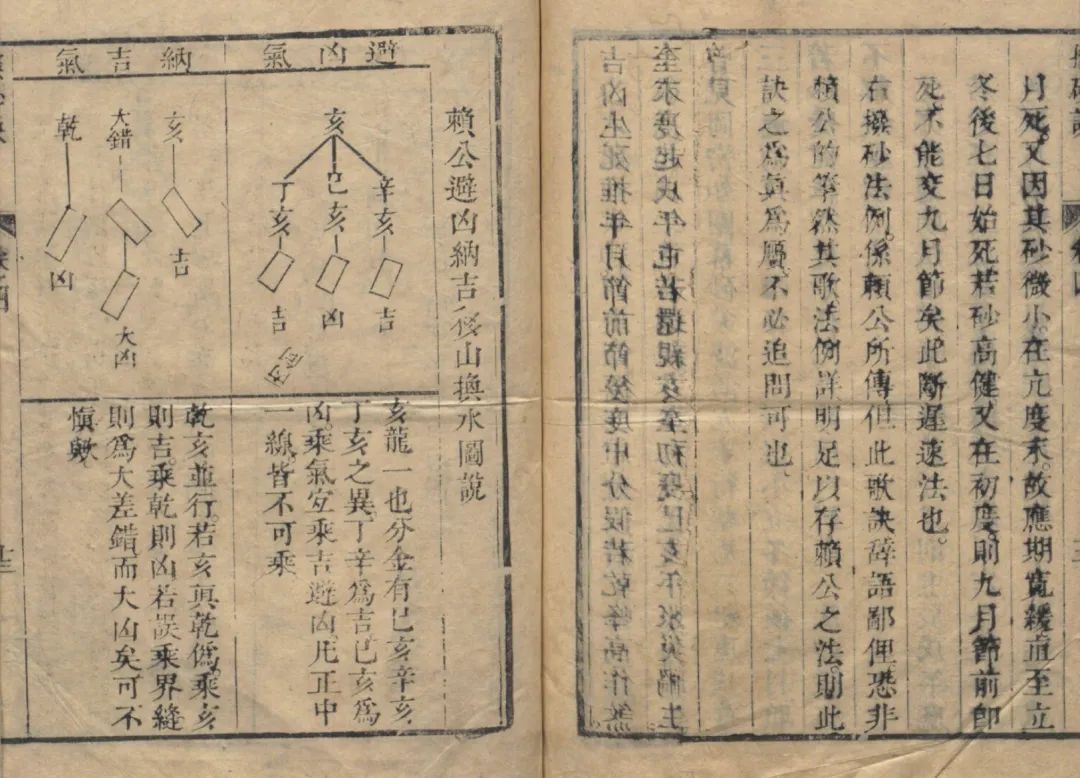 月死又因其砂微小。在亢度末。故應期寬緩。直至立
冬後七日始死若砂高健又在初度。則九月節前即
死。不能交九月節矣此斷遲速法也。
右撥砂法例。係賴公所傳但此歌訣辭語鄙俚。恐非
賴公的筆然其歌法例詳明足以存賴公之法。則此
訣之爲眞爲贗。不必追問可也。
賴公避凶納吉移山換水圖說
避凶氣
亥
辛亥 吉
巳亥 凶
丁亥 吉
亥龍一也分金有巳亥辛亥
丁亥之異丁辛爲吉巳亥爲
凶。乘氣宜乘吉避凶。凡正中
一線皆不可乘
納吉氣
亥 吉
大錯 大凶
乾 凶
乾亥並行。若亥眞乾僞。乘亥
則吉。乘乾則凶若誤乘界縫
則爲大差錯而大凶矣可不
愼歟